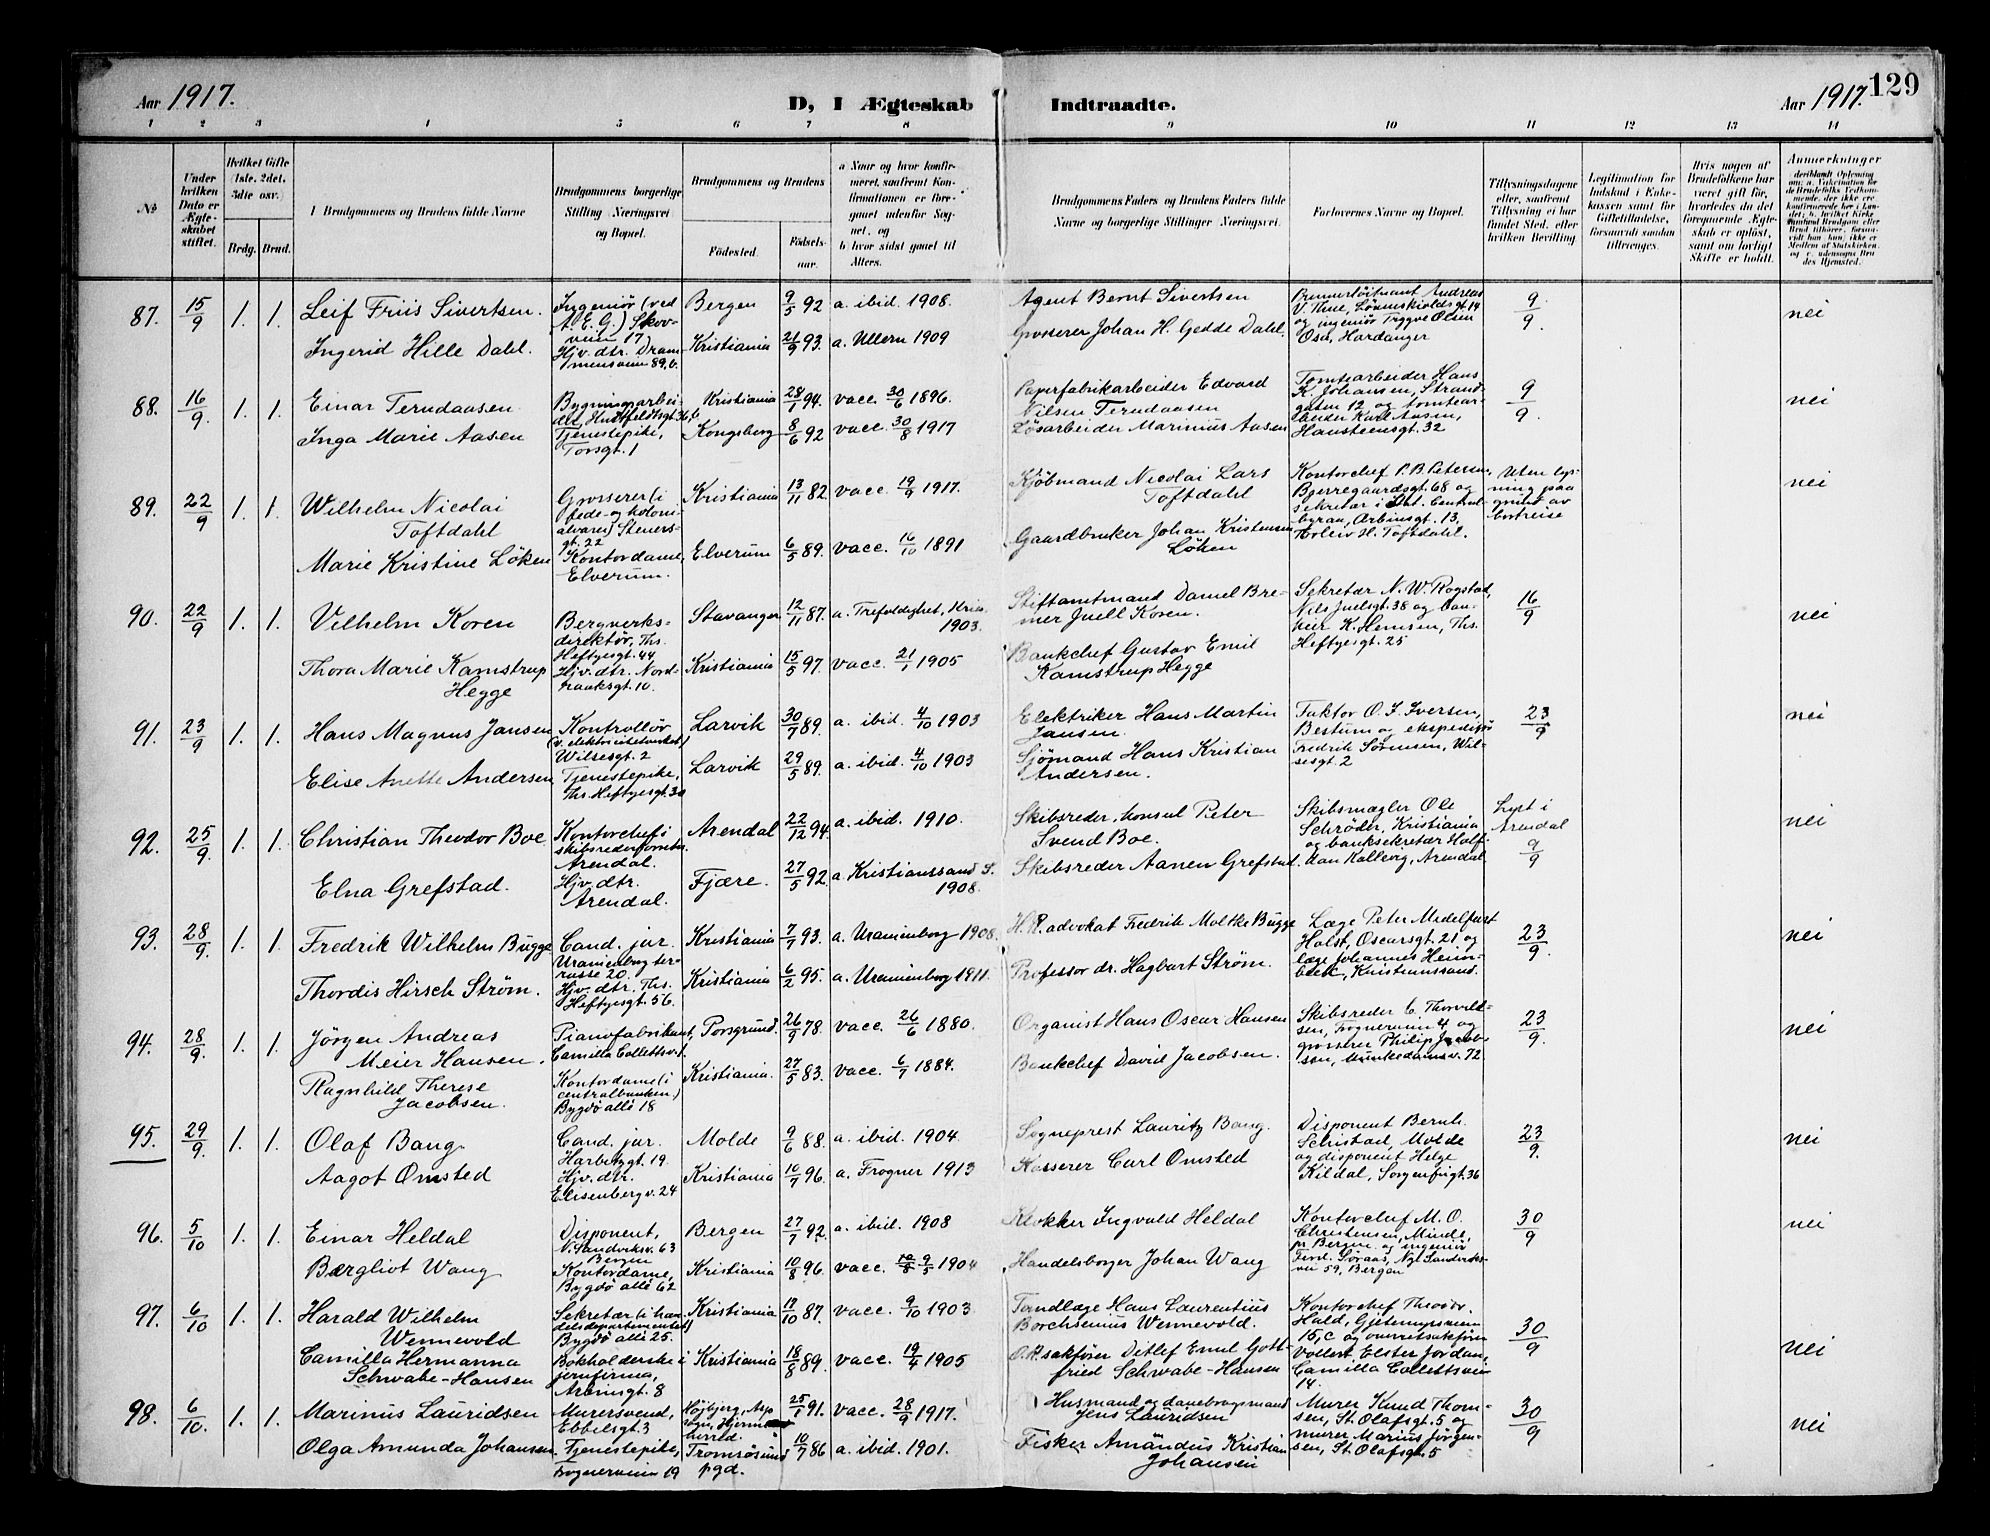 Aar 1917.
D, I Ægteskab Indtraadte.
Aar 1917. 129
1 2 3 4 5 6 7 8 9 10 11 12 13 14
No
Under hvilken Dato er Ægteskabet stiftet.
Hvilket Gifte (1ste, 2det, 3dte osv.)
Brdg. Brud.
Brudgommens og Brudens fulde Navne
Brudgommens borgerlige Stilling (Næringsvei) og Bopæl.
Brudgommens og Brudens
Fødested. Fødselsaar.
a Naar og hvor konfirmeret, saafremt Konfirmationen er foregaaet udenfor Sognet, og
b hvor sidst gaaet til Alters.
Brudgommens Faders og Brudens Faders fulde Navne og borgerlige Stillinger (Næringsvei).
Forlovernes Navne og Bopæl.
Tillysningsdagene eller, saafremt Tillysning ei har fundet Sted, efter hvilken Bevilling.
Legitimation for Indskud i Enkekassen samt for Giftetilladelse, forsaavidt saadan tiltrænges.
Hvis nogen af Brudefolkene har været gift før, hvorledes da det foregaaende Ægteskab er opløst, samt om lovligt Skifte er holdt.
Anmerkninger
87. 15/9 1. 1. Leif Friis Sivertsen. Ingeniør (ved A.E.G.) Skovveien 17 Bergen 9/5 92 a. ibid. 1908. Agent Bernt Sivertsen Premierløitnant Andreas V. Thue, Løvenskioldsgt. 14 og ingeniør Trygve Olsen Osa, Hardanger 9/9. nei
Ingerid Hille Dahl. Hjv. dtr. Drammensveien 89,b. Kristiania 21/9 93. a. Ullern 1909 Grosserer Johan H. Gedde Dahl.
88. 16/9 1. 1. Einar Terudaasen Bygningsarbeider, Huitfeldtsgt. 36,b Kristiania 28/1 94. vacc. 30/6 1896. Papirfabrikarbeider Edvard Nilsen Terudaasen Tomtearbeider Hans K. Johansen, Strandgaten 12 og tomtearbeider Karl Aasen, Hansteensgt. 32 9/9. nei
Inga Marie Aasen Tjenestepike, Torsgt. 1 Kongsberg 8/6 92 vacc. 30/8 1917 Løsarbeider Marinius Aasen
89. 22/9 1. 1. Wilhelm Nicolai Toftdahl Grosserer (i fede- og kolonialvarer) Stenersgt. 22 Kristiania 13/11 82 vacc. 19/9 1917. Kjøbmand Nicolai Lars Toftdahl Kontorchef P. B. Petersen, Bjerregaardsgt. 68 og sekretær i Stat. Centralbyraa, Arbinsgt. 13, Toleiv H. Toftdahl. Uten lysning paa grund av bortreise nei
Marie Kristine Løken Kontordame, Elverum. Elverum 6/5 89. vacc. 16/10 1891 Gaardbruker Johan Kristensen Løken
90. 22/9 1. 1. Vilhelm Koren Bergverksdirektør, Ths. Heftyesgt. 44 Stavanger 12/11 87. a. Trefoldighet, Kria. 1903. Stiftamtmand Daniel Bremer Juell Koren. Sekretær N. W. Rogstad, Nils Juelsgt. 38 og bankier K. Hemsen, Ths. Heftyesgt. 25 16/9 nei
Thora Marie Kamstrup Hegge Hjv. dtr. Nordraaksgt. 10. Kristiania 15/5 97. vacc. 21/1 1905 Bankchef Gustav Emil Kamstrup Hegge
91. 23/9 1. 1. Hans Magnus Jansen Kontrollør (v. elektricitetsverket) Wilsesgt. 2 Larvik 30/7 89. a. ibid. 4/10 1903 Elektriker Hans Martin Jansen Faktor O. J. Iversen, Bestum og ekspeditør Fredrik Sørensen, Wilsesgt. 2 23/9 nei
Elise Anette Andersen Tjenestepike, Ths. Heftyesgt. 30 Larvik 29/5 89. a. ibid. 4/10 1903 Sjømand Hans Kristian Andersen.
92. 25/9. 1. 1. Christian Theodor Boe Kontorchef i skibsrederforretn. Arendal. Arendal 22/12 94 a. ibid. 1910. Skibsreder, konsul Peter Svend Boe. Skibsmægler Ole Schrøder, Kristiania og banksekretær Halfdan Kalberg, Arendal Lyst i Arendal 9/9 nei
Elna Grefstad. Hjv. dtr. Arendal. Fjære. 27/5 92. a. Kristianssand S. 1908. Skibsreder Aanen Grefstad.
93. 28/9. 1. 1. Fredrik Wilhelm Bugge Cand. jur. Uranienborg terrasse 20. Kristiania 7/7 93. a. Uranienborg 1908. H.R.advokat Fredrik Moltke Bugge Læge Peter Midelfart Holst, Oscarsgt. 21 og læge Johannes Heimbeck, Kristianssand. 23/9. nei
Thordis Hirsch Strøm. Hjv. dtr. Ths. Heftyesgt. 56. Kristiania 6/2 95. a. Uranienborg 1911. Professor dr. Hagbart Strøm.
94. 28/9. 1. 1. Jörgen Andreas Meier Hansen. Pianofabrikant, Camilla Collettsv. 1. Porsgrund. 26/9 78. vacc. 26/6 1880. Organist Hans Oscar Hansen Skibsreder C. Thorvaldsen, Frognerveien 4 og grosserer Philip Jacobsen, Munkedamsv. 72 23/9. nei
Ragnhild Therese Jacobsen. Kontordame (i centralbanken) Bygdø allé 18 Kristiania. 27/5 83. vacc. 6/7 1884. Bankchef David Jacobsen.
95. 29/9. 1. 1. Olaf Bang Cand. jur. Harbitzgt. 19 Molde 9/6 88. a. ibid. 1904. Sogneprest Lauritz Bang. Disponent Bernh. Schistad, Molde og disponent Helge Kildal, Sorgenfrigt. 36 23/9. nei
Aagot Omsted Hjv. dtr. Elisenberg v. 24 Kristiania 10/7 96. a. Frogner 1913 Kasserer Carl Omsted
96. 5/10 1. 1. Einar Heldal Disponent, N. Sandviksv. 63 Bergen Bergen 27/7 92. a. ibid. 1908 Klokker Ingvald Heldal Kontorchef M. O. Christensen, Minde, pr Bergen og ingeniør Ferd. Søraas, Nye Sandviksvei 59, Bergen 30/9 nei
Bergliot Wang Kontordame, Bygdø allé 62 Kristiania 10/8 96. vacc. 9/5 1904 Handelsborger Johan Wang
97. 6/10 1. 1. Harald Wilhelm Wennevold Sekretær (i handelsdepartementet) Bygdø allé 25. Kristiania 17/10 87. vacc. 9/10 1903 Tandlæge Hans Laurentius Borchsenius Wennevold. Kontorchef Theodor Hald, Gjetemyrsveien 15,c og overretssakfører Vollert Elster Jordan, Camilla Collettsvei 14. 30/9 nei
Camilla Hermanna Schwabe-Hansen Bokholderske i jernfirma, Arbinsgt. 8 Kristiania 18/8 89. vacc. 19/4 1905 O.r.sakfører Ditlef Emil Gottfried Schwabe-Hansen
98. 6/10. 1. 1. Marinus Lauridsen Murersvend, Ebbelsgt. 3 Höjbjerg, Asp sogn, Hjerm herred. 25/1 91. vacc. 28/9 1917. Husmand og danebrogsmand Jens Lauridsen Murer Knud Thomsen, St. Olafsgt. 5 og murer Marius Jørgensen, St. Olafsgt. 5 30/9 nei
Olga Amunda Johansen. Tjenestepike, Frognerveien 19 Tromsøsund pgd. 10/7 86 a. ibid. 1901. Fisker Amandus Kristian Johansen